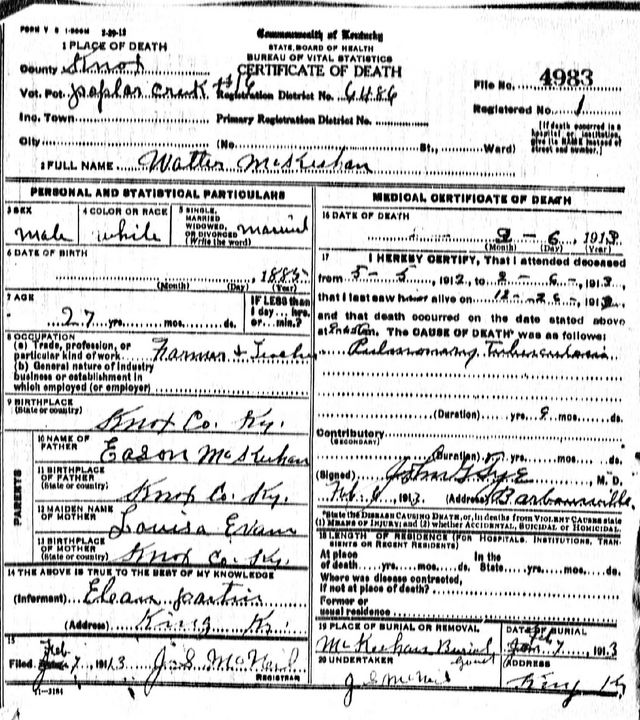 FORM V S 1-500M 3-20-12
Commonwealth of Kentucky
STATE BOARD OF HEALTH
BUREAU OF VITAL STATISTICS
CERTIFICATE OF DEATH
1 PLACE OF DEATH
County Knox
Vot. Pct. poplar creek #16 Registration District No. 6486
File No. 4983
Registered No. 1
Inc. Town Primary Registration District No.
City (No. St., Ward)
[If death occurred in a hospital or institution, give its NAME instead of street and number.]
2 FULL NAME Walter McKeehan
PERSONAL AND STATISTICAL PARTICULARS
3 SEX
male
4 COLOR OR RACE
white
5 SINGLE, MARRIED WIDOWED, OR DIVORCED (Write the word)
married
6 DATE OF BIRTH
1885
(Month) (Day) (Year)
7 AGE
27 yrs. mos. ds.
IF LESS than 1 day... hrs. or... min.?
8 OCCUPATION
(a) Trade, profession, or particular kind of work Farmer & Teacher
(b) General nature of industry business or establishment in which employed (or employer)
9 BIRTHPLACE
(State or country)
Knox Co. Ky.
PARENTS
10 NAME OF FATHER
Eason McKeehan
11 BIRTHPLACE OF FATHER
(State or country)
Knox Co. Ky.
12 MAIDEN NAME OF MOTHER
Louisa Evans
13 BIRTHPLACE OF MOTHER
(State or country)
Knox Co. Ky.
14 THE ABOVE IS TRUE TO THE BEST OF MY KNOWLEDGE
(Informant)
(Address) King Ky.
15
Filed Feb 7 1913 J. S. McNeil
REGISTRAR
11-3184
MEDICAL CERTIFICATE OF DEATH
16 DATE OF DEATH
2 - 6, 1913
(Month) (Day) (Year)
17 I HEREBY CERTIFY, That I attended deceased
from 5-5, 1912, to 2-6-, 1913,
that I last saw him alive on 12-26-, 1912,
and that death occurred on the date stated above
at m. The CAUSE OF DEATH* was as follows:
Pulmonary Tuberculosis
(Duration) yrs. 9 mos. ds.
Contributory
(SECONDARY)
(Duration) yrs. mos. ds.
(Signed) John G Tye M. D.
Feb. 6, 1913. (Address) Barbourville
*State the DISEASE CAUSING DEATH, or, in deaths from VIOLENT CAUSES state
(1) MEANS OF INJURY; and (2) whether ACCIDENTAL, SUICIDAL or HOMICIDAL.
18 LENGTH OF RESIDENCE (FOR HOSPITALS, INSTITUTIONS, TRANSIENTS OR RECENT RESIDENTS)
At place of death yrs. mos. ds. In the State yrs. mos. ds.
Where was disease contracted,
if not at place of death?
Former or usual residence
19 PLACE OF BURIAL OR REMOVAL
McKeehan Burial
DATE OF BURIAL
Feb 7, 1913
20 UNDERTAKER
J S McNeil
ADDRESS
King Ky